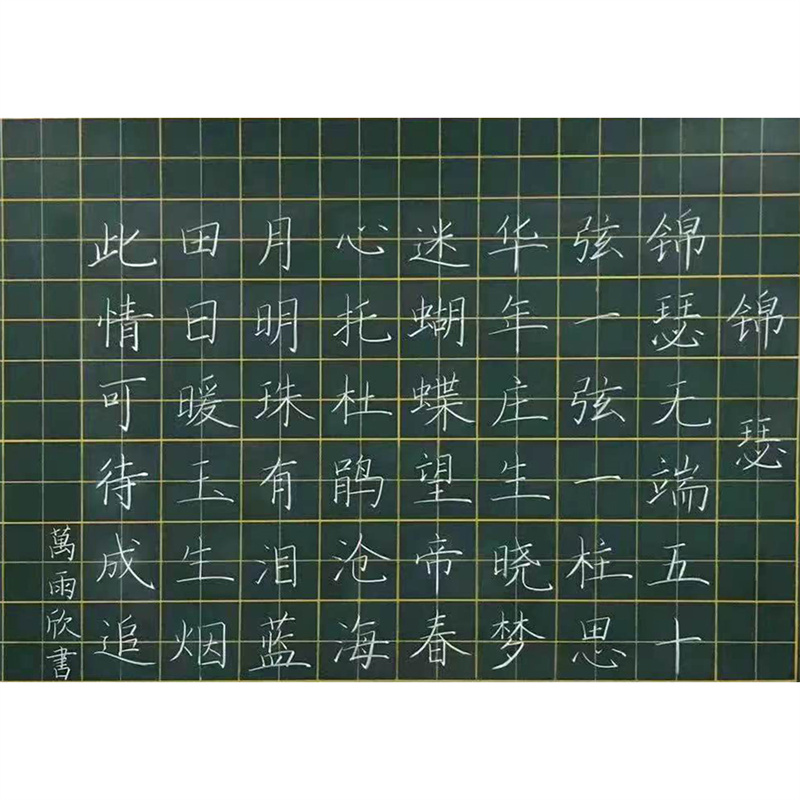 锦瑟
锦瑟无端五十
弦一弦一柱思
华年庄生晓梦
迷蝴蝶望帝春
心托杜鹃沧海
月明珠有泪蓝
田日暖玉生烟
此情可待成追
萬雨欣書